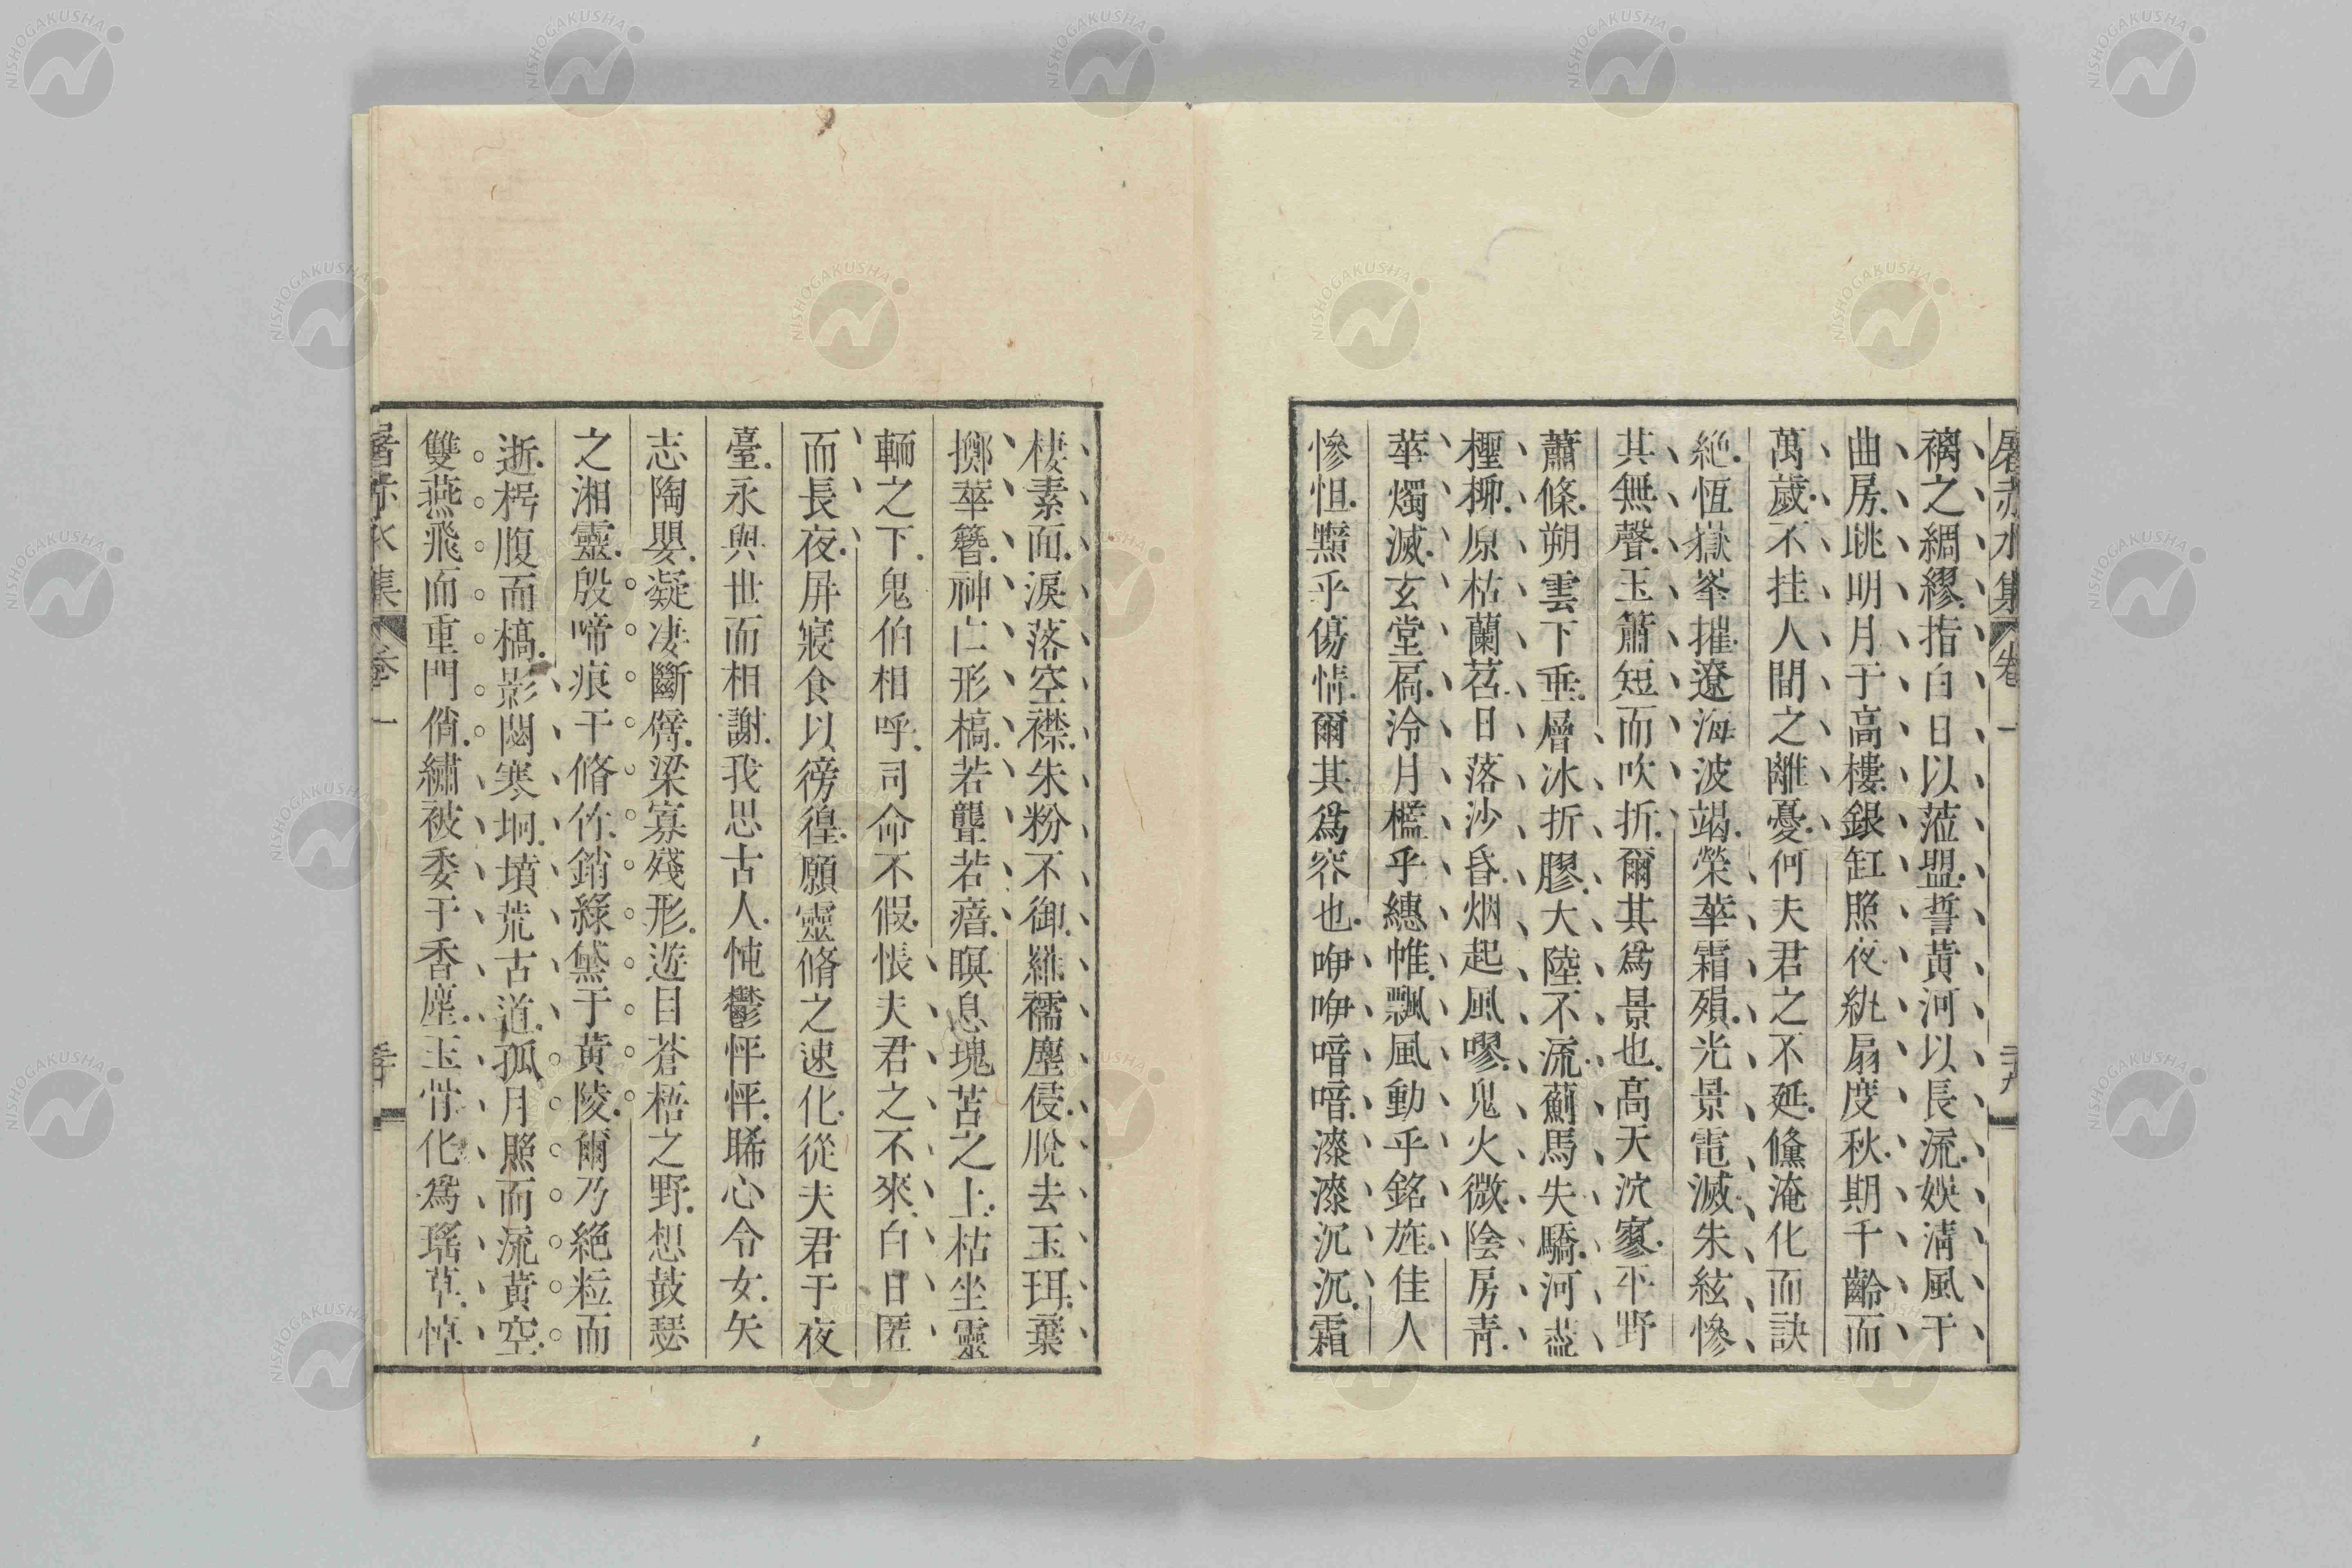 屠赤水集 卷一 二十九
褵之綢繆指白日以蒞盟誓黃河以長流娛淸風于
曲房眺明月于高樓銀缸照夜紈扇度秋期千齡而
萬歲不挂人間之離憂何夫君之不延儵淹化而訣
絶恆嶽峯摧遼海波竭榮華霜殞光景電滅朱絃慘
其無聲玉簫短而吹折爾其爲景也高天泬寥平野
蕭條朔雲下垂層冰折膠大陸不流薊馬失驕河盡
檉柳原枯蘭苕日落沙昏烟起風嘐鬼火微陰房靑
華燭滅玄堂扃泠月檻乎繐帷飄風動乎銘旌佳人
慘怛黯乎傷情爾其爲容也咿咿喑喑漆漆沉沉霜
棲素面淚落空襟朱粉不御羅襦塵侵脫去玉珥棄
擲華簪神亡形槁若聾若瘖瞑息塊苫之上枯坐靈
輀之下鬼伯相呼司命不假悵夫君之不來白日匿
而長夜屏寢食以徬徨願靈脩之速化從夫君于夜
臺永與世而相謝我思古人忳鬱怦怦睎心令女矢
志陶嬰凝凄斷臂梁寡殘形遊目蒼梧之野想鼓瑟
之湘靈殷啼痕于脩竹銷綠黛于黃陵爾乃絶粒而
逝枵腹而槁影閟寒坰墳荒古道孤月照而流黃空
雙燕飛而重門俏繡被委于香塵玉骨化爲瑤草悼
屠赤水集 卷一 三十